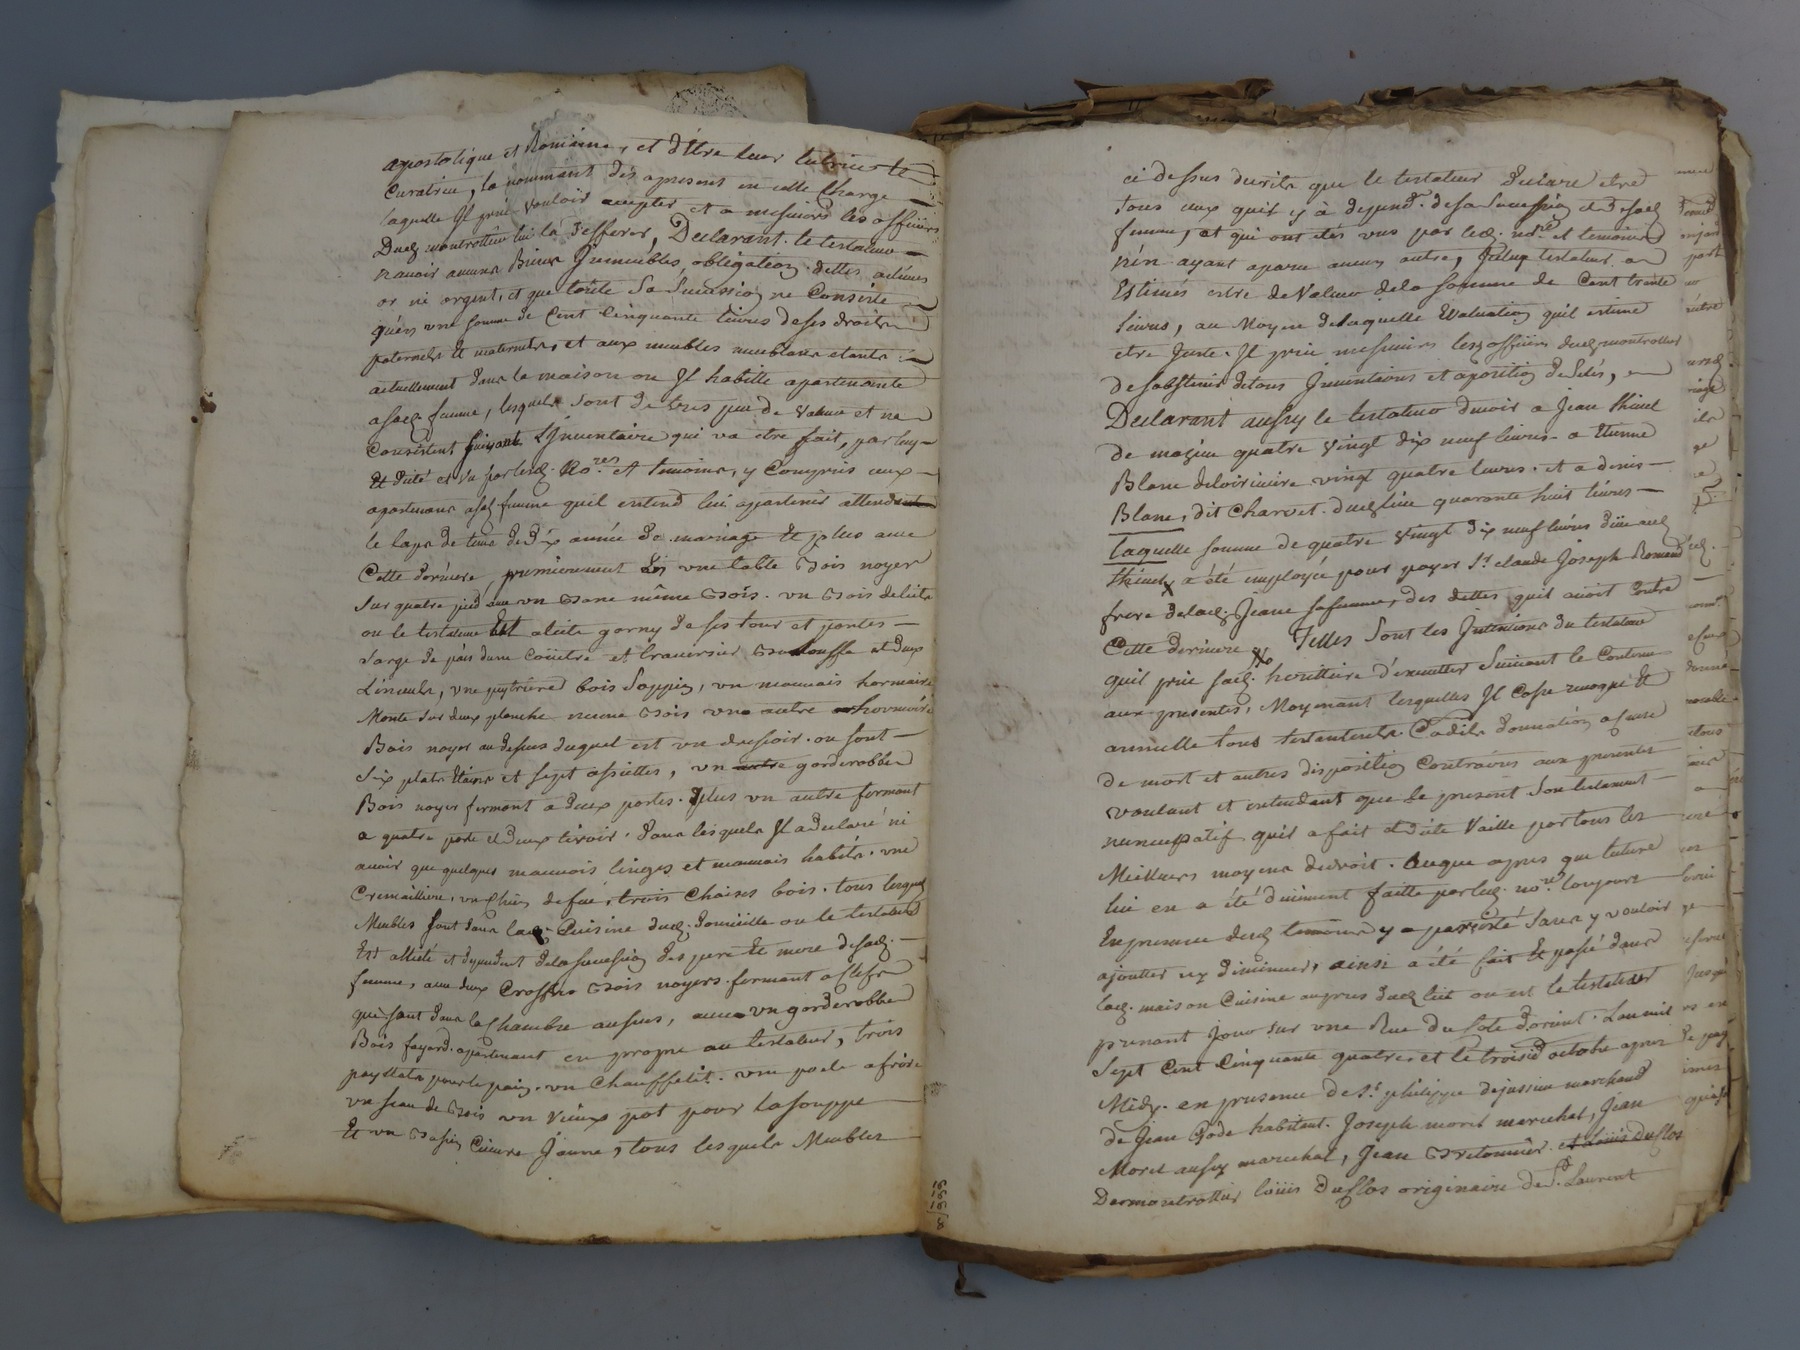 apostolique et Romaine, et d'Etre leur tutrice et
Curatrice, la nommant dès apresent en cette Charge
laquelle Il prie vouloir accepter et a messieurs les officiers
Dud. montrottier lui la defferer, Declarant le testateur
n'avoir aucuns Biens Immeubles, obligation dettes actives
or ni argent, et que toute Sa Succession ne Consiste
qu'en une somme de Cent Cinquante livres de ses droits
paternels et maternels, et aux meubles meublans etants
actuellement dans la maison ou Il habitte apartenante
asad. femme, lesquels sont de tres peu de valeur et ne
Consistent suivant L'Inventaire qui va etre fait, par luy
Et dicté et vu par lesd. No.res et temoins, y Compris ceux
apartenans asad. femme quil entend lui appartenir attendu
le laps de tems de dix année de mariage et plus avec
Cette derniere, premierement une table Bois noyer
sur quatre pied avec un Banc même Bois. un Bois delict
ou le testateur Est alicté garny de ses tour et pentes
sarge de païs d'une Coüetre et traversier Balouffe et deux
Linceuls, une petriere bois Sappin, un mauvais hormaire
Monté sur deux planche meme Bois une autre hormoire
Bois noyer au dessus duquel est un dressoir ou sont
Six plats Etains et sept assiettes, un autre garderobbe
Bois noyer fermant a deux portes. Plus un autre fermant
a quatre porte et deux tiroir, dans lesquels Il a declaré ni
avoir que quelques mauvois linges et mauvais habits. une
Cremaillere, un Chien de feu, trois Chaises bois. tous lesquels
Meubles sont dans lad. Cuisine dud. domicille ou le testateur
Est allitté et dependent de la succession des pere et mere desad.
femme, avec deux Coffres Bois noyers fermant a Clefs
qui sont dans la Chambre audessus, avec un garderobbe
Bois fayard apartenant en propre au testateur, trois
payllats pour le pain. un Chauffelit. une poele a frire
un seau de Bois un vieux pot pour la souppe
Et un Bassin Cuivre Jaune, tous lesquels Meubles
ci dessus decrits que le testateur declare etre
tous ceux quil y à deppend.t de sa Succession et desad.
femme, et qui ont etés vus par led. no.re et temoins
n'en ayant aparu aucun autre, Ledup testateur a
Estimés estre de Valeur de la somme de Cent trente
livres, au Moyen delaquelle Evaluation quil estime
etre Juste. Il prie messieurs les officiers dud. montrottier
de sabstenir de tous Inventaires et aposition de Sélés,
Declarant aussy le testateur devoir a Jean thivel
de quatre vingt dix neuf livres a Etienne
Blanc vingt quatre livres. et a denis
Blanc, dit Charvet. dud. lieu quarante huit livres
Laquelle somme de quatre vingt dix neuf livres düe aud.
thivel a été employée pour payer S.r claude Joseph Romand
frere delad. Jeane sa femme, des dettes quil avoit Contre
Cette derniere Telles sont les Intentions du testateur
quil prie sad. herittiere d'executter Suivant le Contenu
aux presentes, Moyenant lesquelles Il Casse revoque et
annulle tous testaments Codiciles donnation a Cause
de mort et autres disposition Contraires aux presentes
voulant et entendant que le present Son testament
nuncupatif quil a fait et dicté Vaille par tous les
Meilleurs moyens dedroit. Ceque apres que lecture
lui en a été düement faitte par led. no.re toujours
En presence desd. temoins y a persisté sans y vouloir
ajoutter ny diminuer, ainsi a été fait et passé dans
lad. maison Cuisine aupres dud. lict ou est le testateur
prenant jour sur une Rue du Cote dorient. Lan mil
Sept Cent Cinquante quatre et le troisie octobre apres
Midy. en presence de S.r philippe dejussieu marchand
de Jean Gode habitant. Joseph morel marechal, Jean
Morel aussy marechal, Jean Bretonnier et Louis Duclos
Demontrottier Louis Duclos originaire de S.t Laurent
16